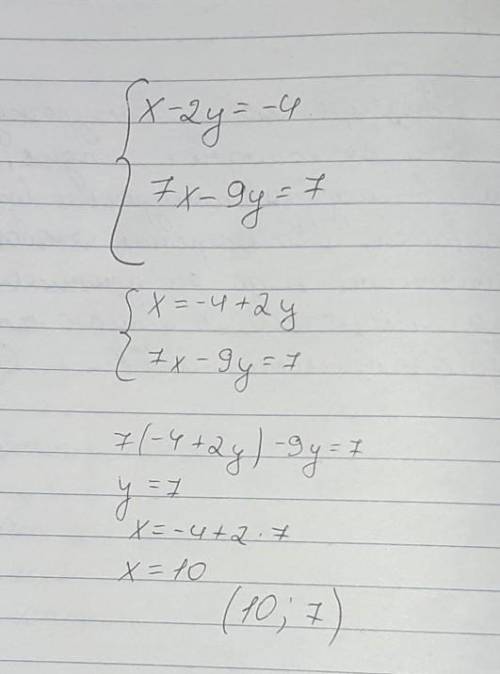 x-2y=-4
7x-9y=7
x=-4+2y
7x-9y=7
7(-4+2y)-9y=7
y=7
x=-4+2·7
x=10
(10; 7)